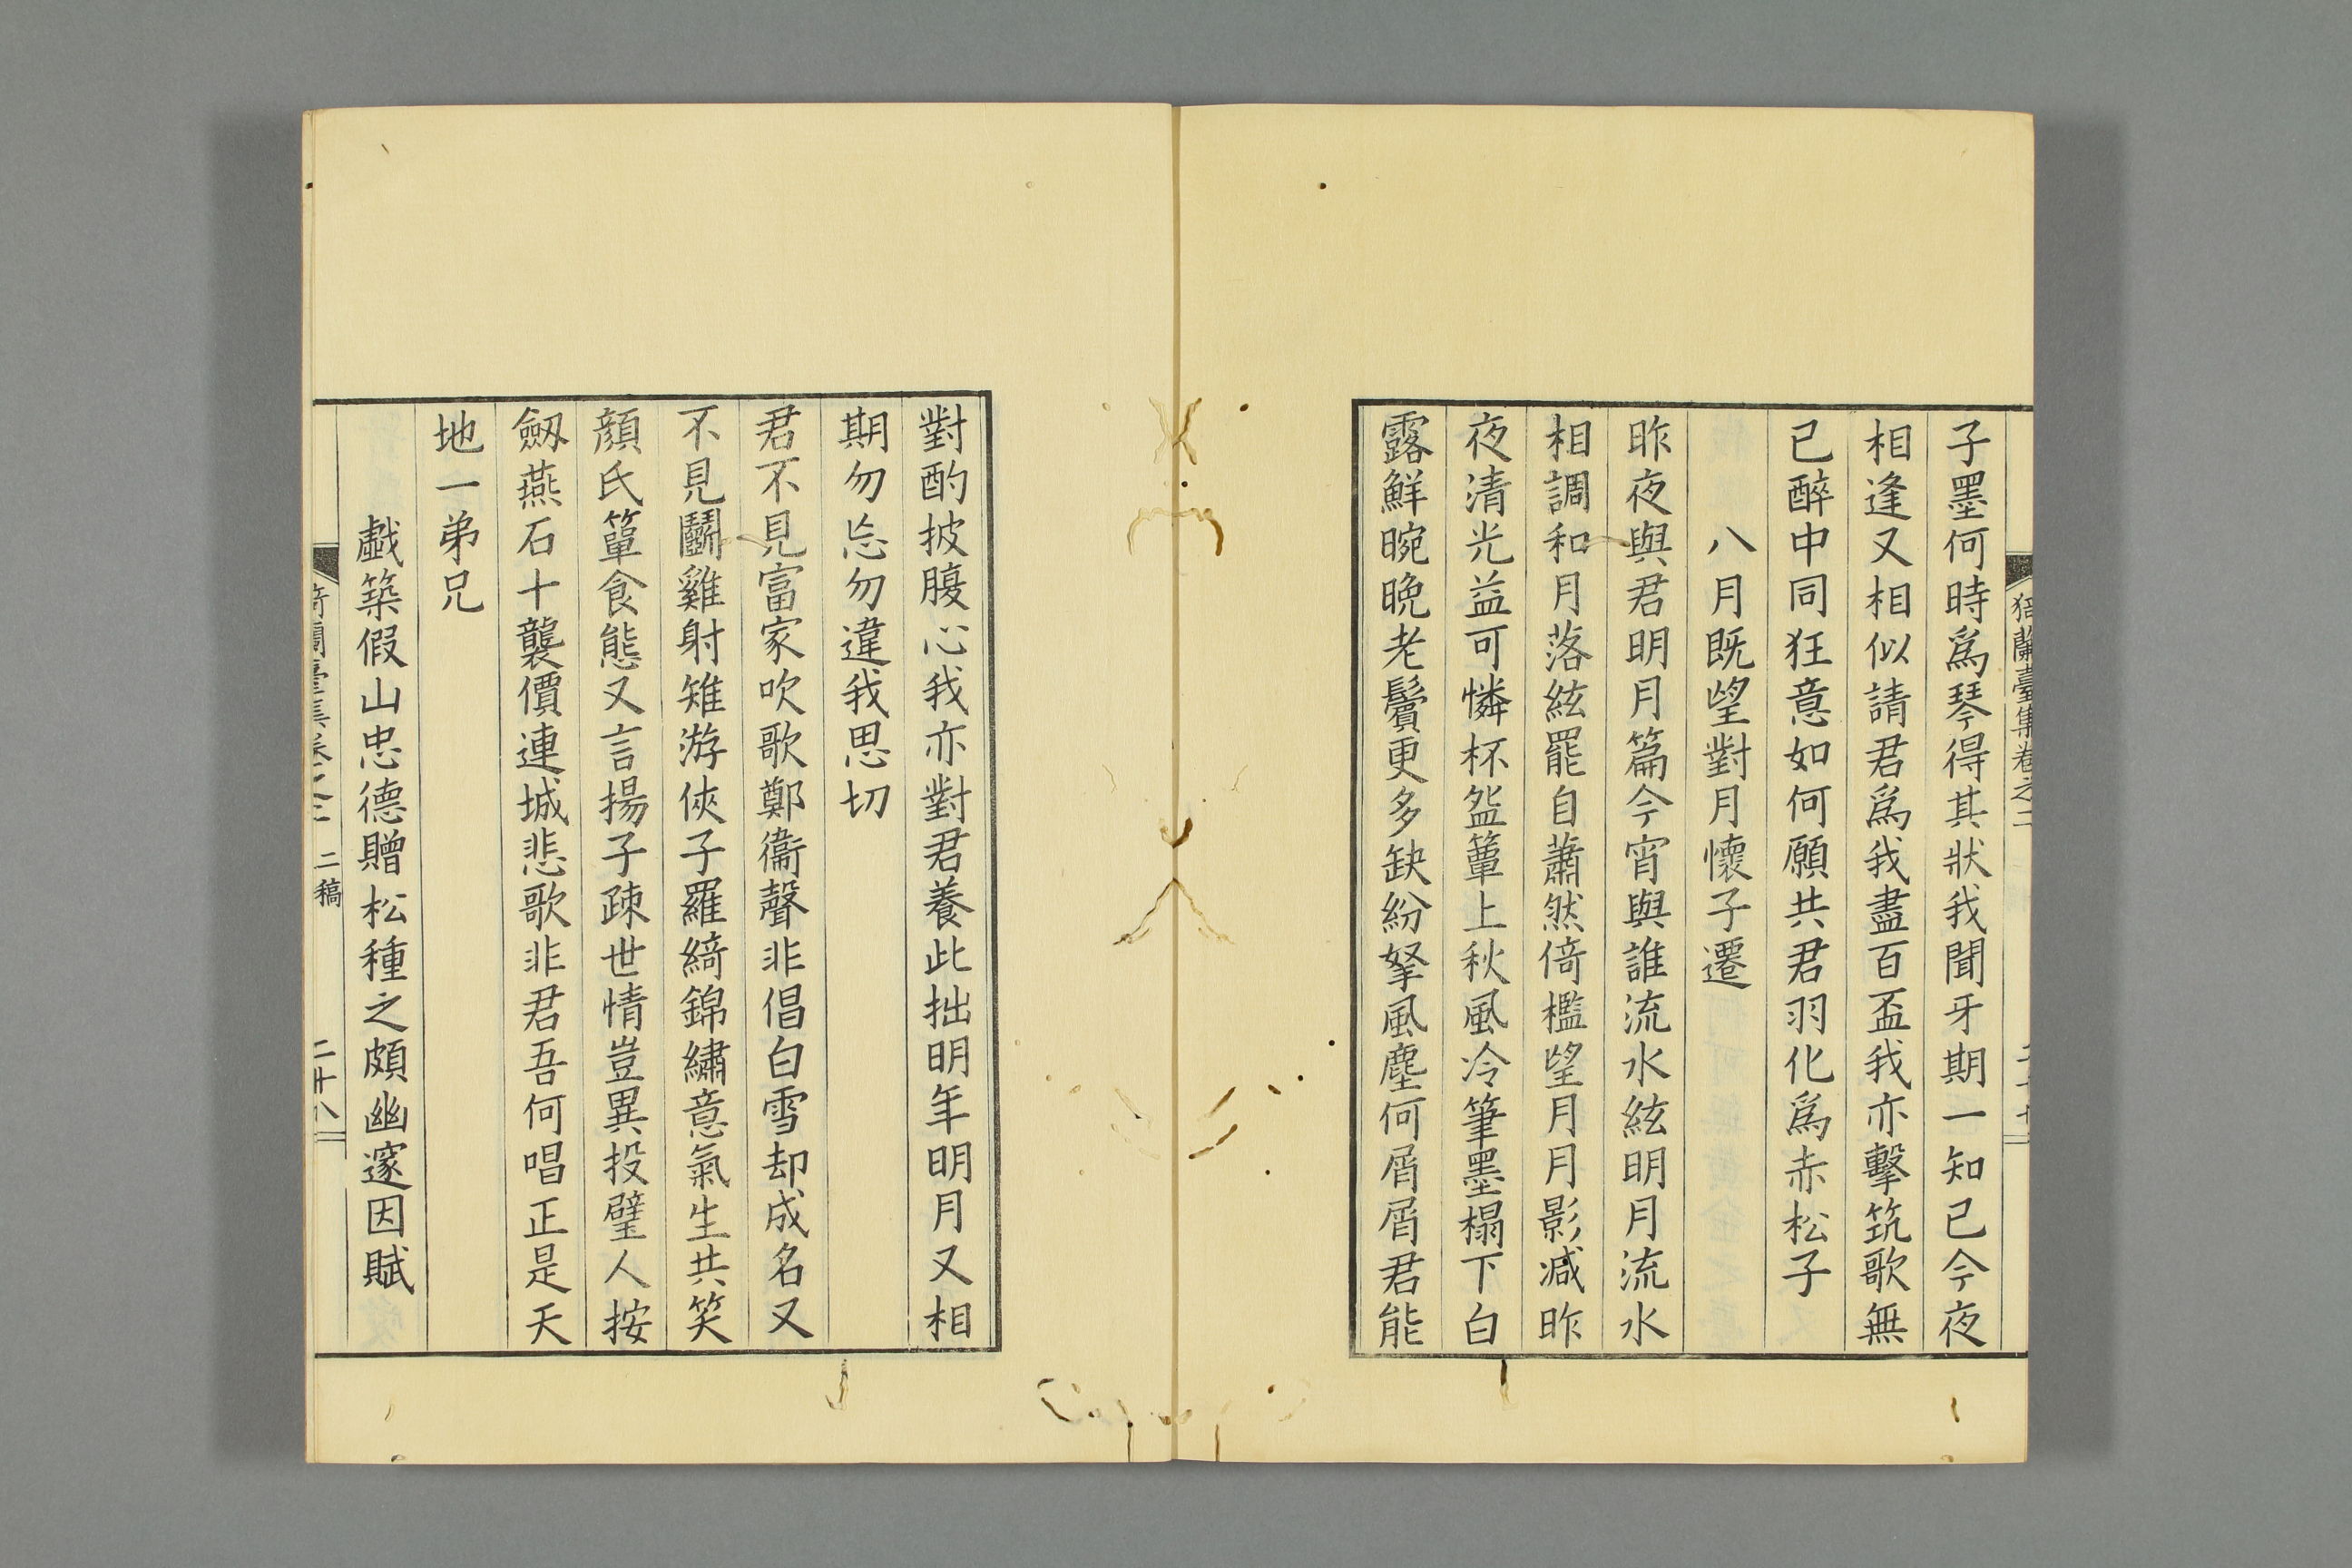 猗蘭臺集卷之二
子墨何時爲琴得其狀我聞牙期一知已今夜
相逢又相似請君爲我盡百盃我亦擊筑歌無
已醉中同狂意如何願共君羽化爲赤松子
八月既望對月懷子遷
昨夜與君明月篇今宵與誰流水絃明月流水
相調和月落絃罷自蕭然倚檻望月月影减昨
夜清光益可憐杯盤簟上秋風冷筆墨榻下白
露鮮晼晩老鬢更多缺紛拏風塵何屑屑君能
對酌披腹心我亦對君養此拙明年明月又相
期勿忘勿違我思切
君不見富家吹歌鄭衞聲非倡白雪却成名又
不見鬪雞射雉游俠子羅綺錦繡意氣生共笑
顔氏簞食態又言揚子疎世情豈異投璧人按
劔燕石十襲價連城悲歌非君吾何唱正是天
地一弟兄
戱築假山忠德贈松種之頗幽邃因賦
猗蘭臺集卷之二 二稿 二十八